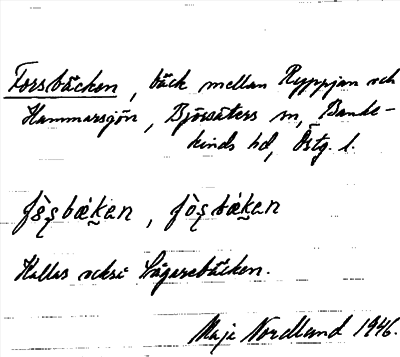 Forsbäcken, bäck mellan Ryppjan och
Hammarsjön, Björsäters sn, Banke-
kinds hd, Östg. l.
Kallas också Sågarebäcken.
Maja Nordlund 1946.